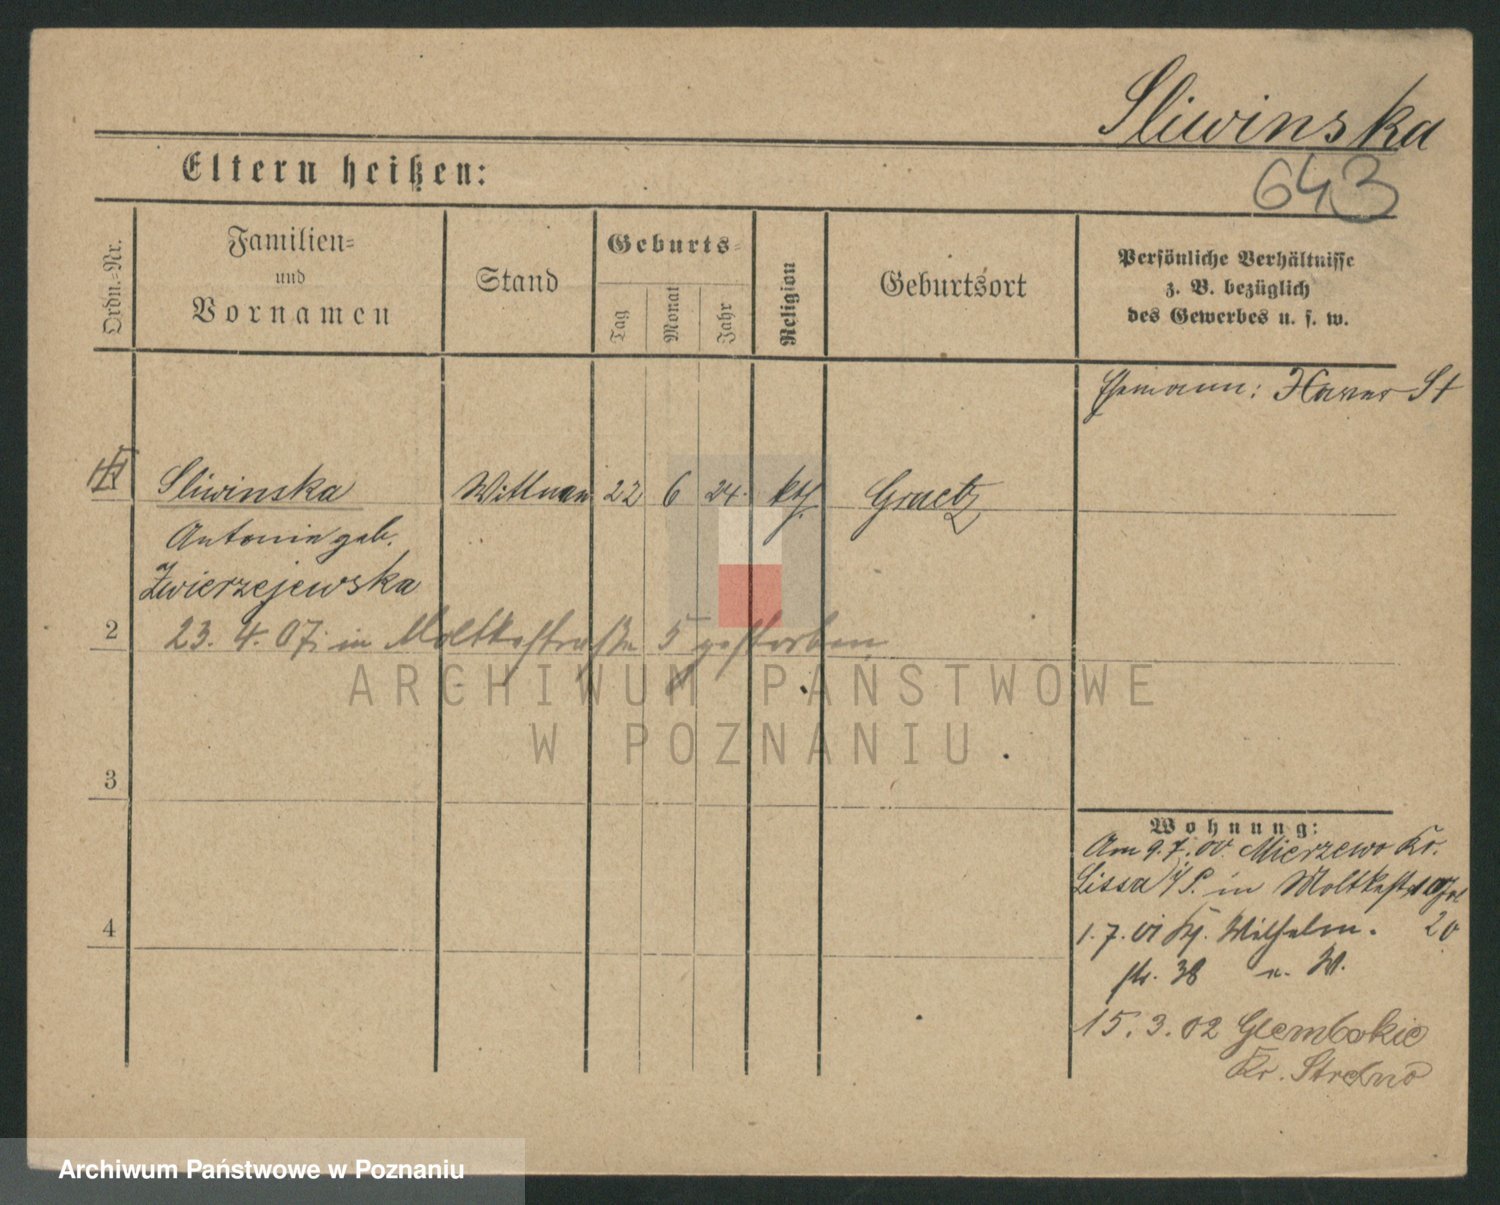 Sliwinska
643
Eltern heißen:
Ordn.-Nr.
Familien-
und
Vornamen
Stand
Geburts-
Tag
Monat
Jahr
Religion
Geburtsort
Persönliche Verhältnisse
z. B. bezüglich
des Gewerbes u. s. w.
Ehemann: Xaver St
Sliwinska
Antonie geb.
Zwierzejewska
Wittwe
22
6
24.
kth.
Graetz
2
23. 4. 07. in Moltkestraße 5 gestorben
3
4
Wohnung:
Am 9.7.00. Mierzewo Kr.
Lissa i/P. in Moltkestr.
20
1.7.01 Wilhelm-
str. 38
15.3.02 Glembokie
Kr. Strelno
ARCHIWUM PAŃSTWOWE
W POZNANIU
Archiwum Państwowe w Poznaniu